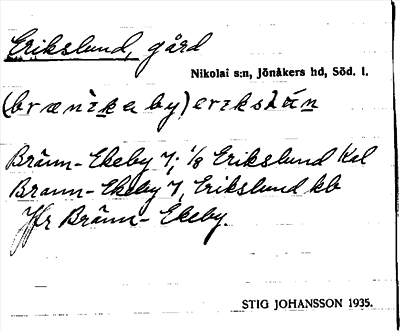 Erikslund, gård
Nikolai s:n, Jönåkers hd, Söd. l.
Bränn-Ekeby 7; 1/8 Erikslund Kal
Brann-Ekeby 7, Erikslund kb
Jfr Bränn-Ekeby.
STIG JOHANSSON 1935.